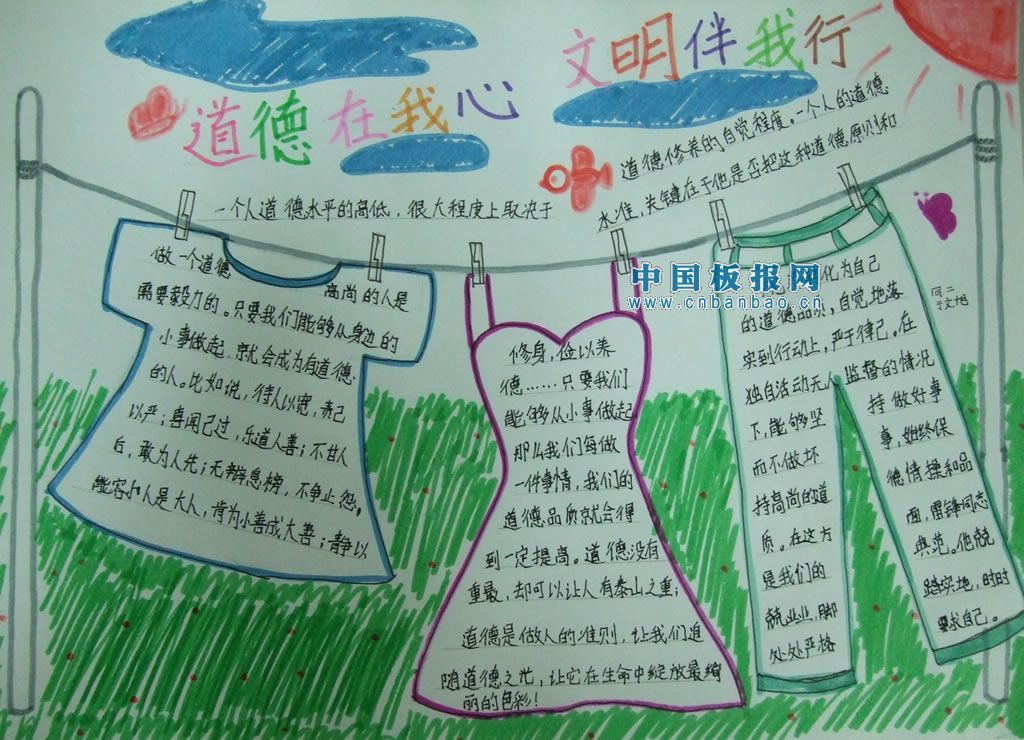 道德在我心
文明伴我行
一个人道德水平的高低，很大程度上取决于
道德修养的自觉程度。一个人的道德
水准，关键在于他是否把这种道德原则和
中国板报网
www.cnbanbao.cn
做一个道德高尚的人是
需要毅力的。只要我们能够从身边的
小事做起，就会成为有道德
的人。比如说，待人以宽，责己
以严；喜闻己过，乐道人善；不甘人
后，敢为人先；无辩息榜，不争止怨。
能容小人是大人，肯为小善成大善；静以
修身，俭以养
德……只要我们
能够从小事做起
那么我们每做
一件事情，我们的
道德品质就会得
到一定提高。道德没有
重量，却可以让人有泰山之重；
道德是做人的准则，让我们追
随道德之光，让它在生命中绽放最绚
丽的色彩！
化为自己
的道德品质，自觉地落
实到行动上，严于律己。在
独自活动无人监督的情况
下，能够坚持做好事
而不做坏事，始终保
持高尚的道德情操和品
质。在这方面，雷锋同志
是我们的典范。他兢
兢业业，脚踏实地，时时
处处严格要求自己。